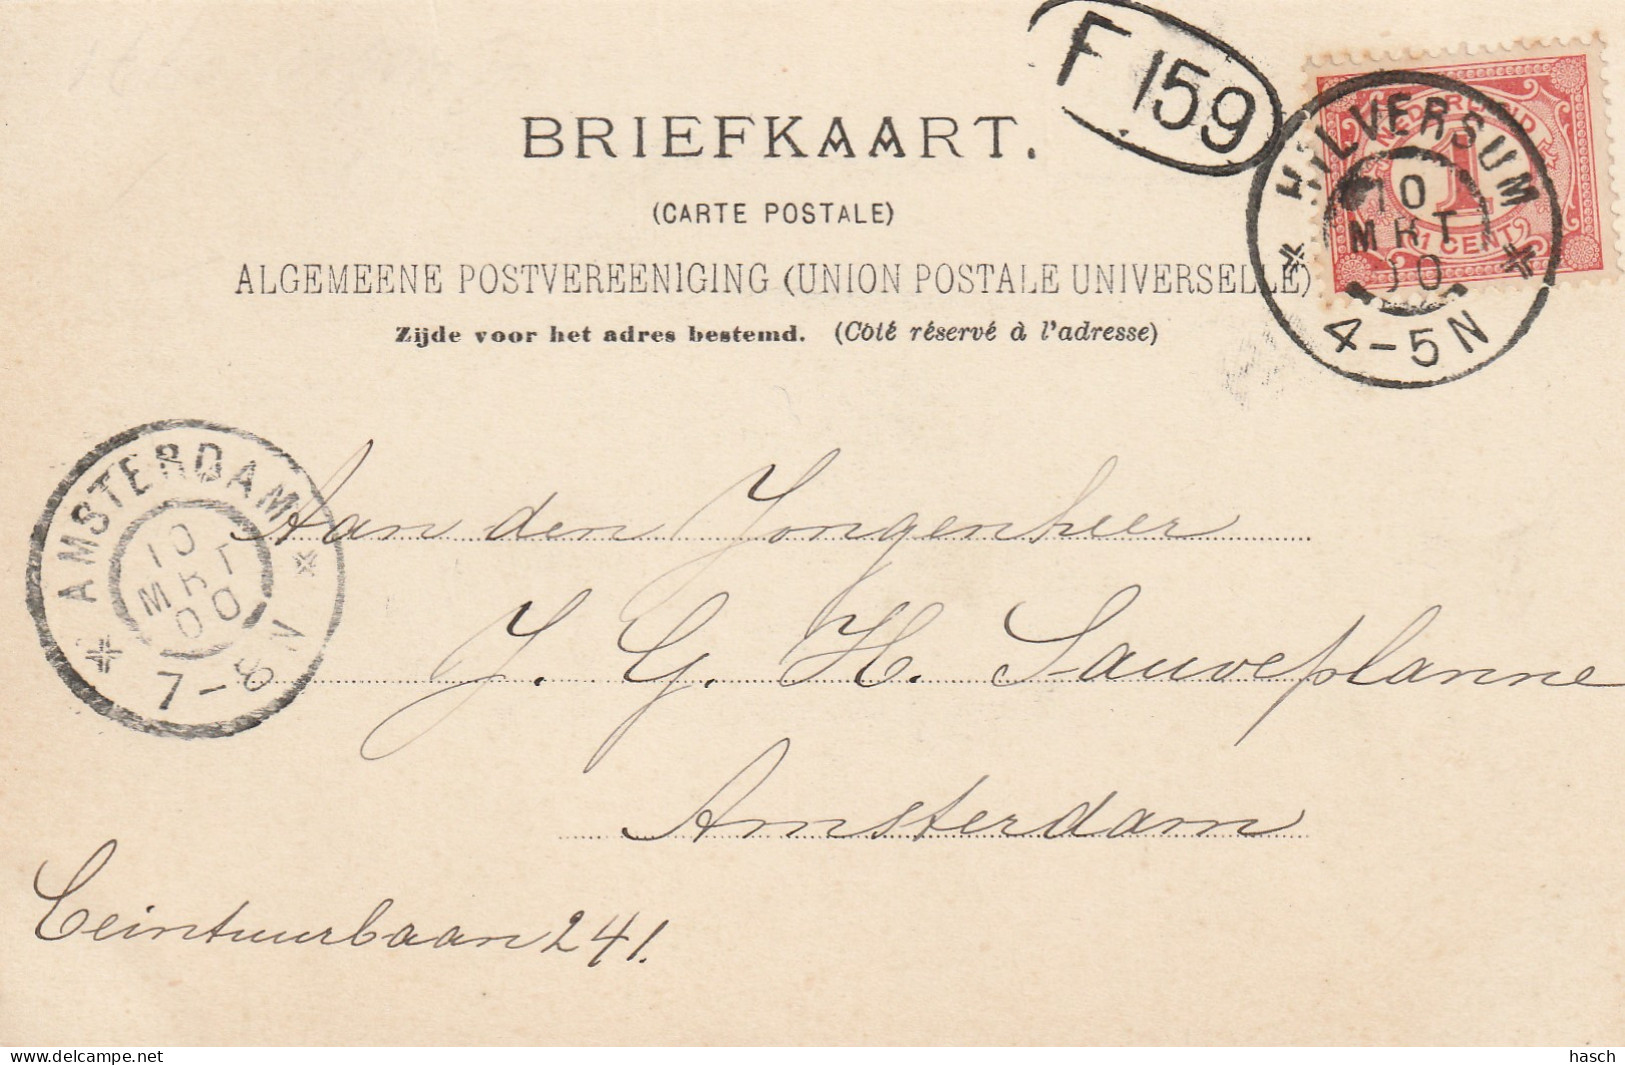 F 159
NEDERLAND
1
1 CENT
HILVERSUM
10
MRT
00
4-5N
BRIEFKAART.
(CARTE POSTALE)
ALGEMEENE POSTVEREENIGING (UNION POSTALE UNIVERSELLE)
Zijde voor het adres bestemd. (Côté réservé à l'adresse)
AMSTERDAM
10
MRT
00
7-8 N
Aan den Jongenheer
J. G. H. Sauveplanne
Amsterdam
Ceintuurbaan 241.
Delcampe.net
hasch